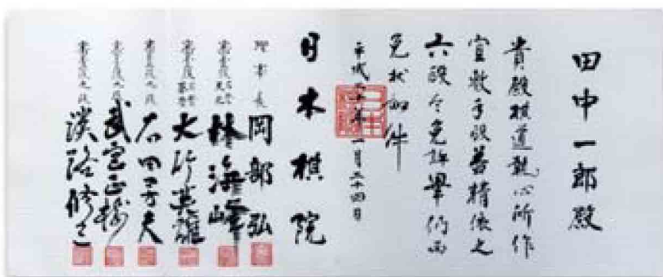 田中一郎殿
貴殿棋道執心所作
宜敷手段益精依之
六段令免許畢仍而
免状如件
平成二十年一月二十四日
日本棋院
理事長 岡部弘
審査役 名誉天元 林海峰
審査役 名誉碁聖 大竹英雄
審査役九段 石田芳夫
審査役九段 武宮正樹
審査役九段 淡路修三